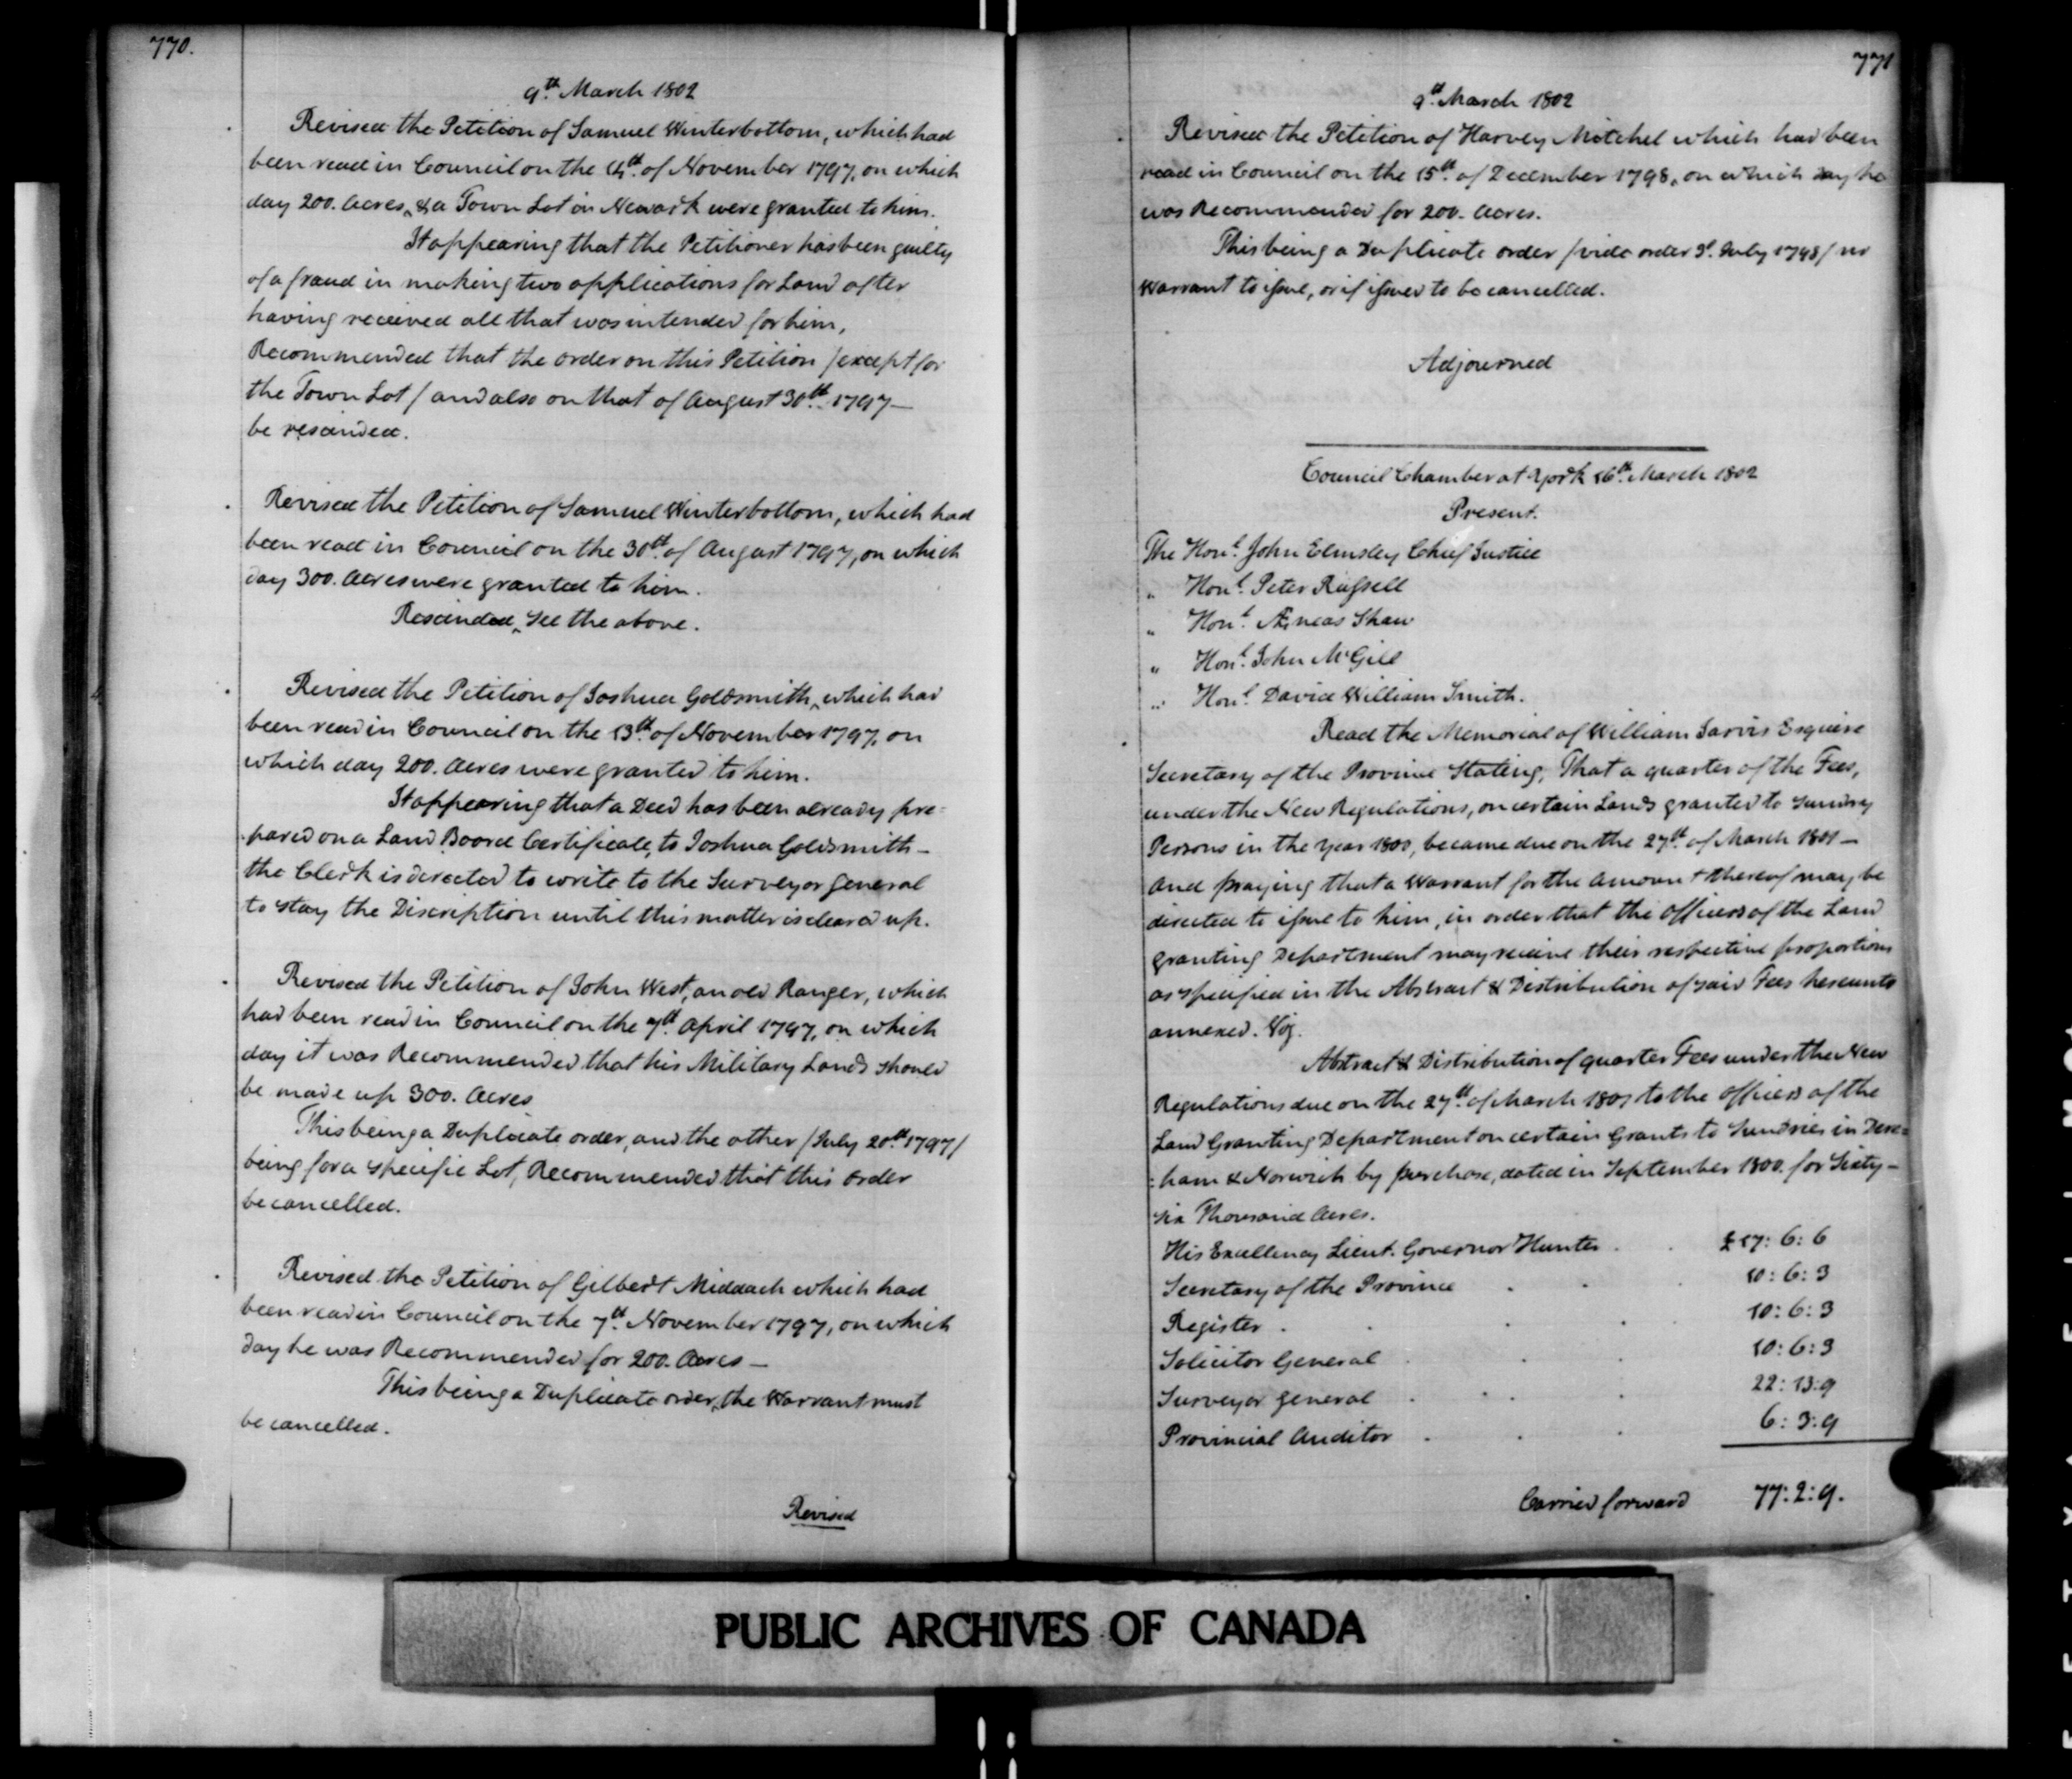 770.
9th. March 1802
Revised the Petition of Samuel Winterbottom, which had
been read in Council on the 14th. of November 1797, on which
day 200. Acres, & a Town Lot in Newark were granted to him.
It appearing that the Petitioner has been guilty
of a fraud in making two applications for Land after
having received all that was intended for him,
Recommended that the order on this Petition /except for
the Town Lot/ and also on that of August 30th. 1797—
be rescinded.
Revised the Petition of Samuel Winterbottom, which had
been read in Council on the 30th. of August 1797, on which
day 300. Acres were granted to him.
Rescinded, See the above.
Revised the Petition of Joshua Goldsmith, which had
been read in Council on the 13th. of November 1797, on
which day 200. Acres were granted to him.
It appearing that a Deed has been already pre-
-pared on a Land Board Certificate, to Joshua Goldsmith—
the Clerk is directed to write to the Surveyor General
to stay the Discription until this matter is cleared up.
Revised the Petition of John West, an old Ranger, which
had been read in Council on the 7th. April 1797, on which
day it was Recommended that his Military Lands should
be made up 300. Acres
This being a Duplicate order, and the other /July 20th. 1797/
being for a specific Lot, Recommended that this order
be cancelled.
Revised the Petition of Gilbert Middach which had
been read in Council on the 7th. November 1797, on which
day he was Recommended for 200. Acres—
This being a Duplicate order, the Warrant must
be cancelled.
Revised
771
9th. March 1802
Revised the Petition of Harvey Mitchel which had been
read in Council on the 15th. of December 1798, on which day he
was Recommended for 200. Acres.
This being a Duplicate order /vide order 3d. July 1798/ no
Warrant to issue, or if issued to be cancelled.
Adjourned
Council Chamber at York 16th. March 1802
Present.
The Honl. John Elmsley Chief Justice
" Honl. Peter Russell
" Honl. Æneas Shaw
" Honl. John McGill
" Honl. David William Smith.
Read the Memorial of William Jarvis Esquire
Secretary of the Province Stating, That a quarter of the Fees,
under the New Regulations, on certain Lands granted to Sundry
Persons in the year 1800, became due on the 27th. of March 1801—
And praying that a Warrant for the Amount thereof may be
directed to issue to him, in order that the Officers of the Land
granting Department may receive their respective proportions
as specified in the Abstract & Distribution of said Fees hereunto
annexed. Viz.
Abstract & Distribution of quarter Fees under the New
Regulations due on the 27th. of March 1801 to the Officers of the
Land Granting Department on certain Grants to Sundries in Dere=
=ham & Norwich by purchase, dated in September 1800. for Sixty-
six Thousand Acres.
His Excellency Lieut. Governor Hunter . . £17: 6: 6
Secretary of the Province . . . 10: 6: 3
Register . . . . 10: 6: 3
Solicitor General . . . 10: 6: 3
Surveyor General . . . 22: 13: 9
Provincial Auditor . . . 6: 3: 9
Carried forward 77: 2: 9.
PUBLIC ARCHIVES OF CANADA